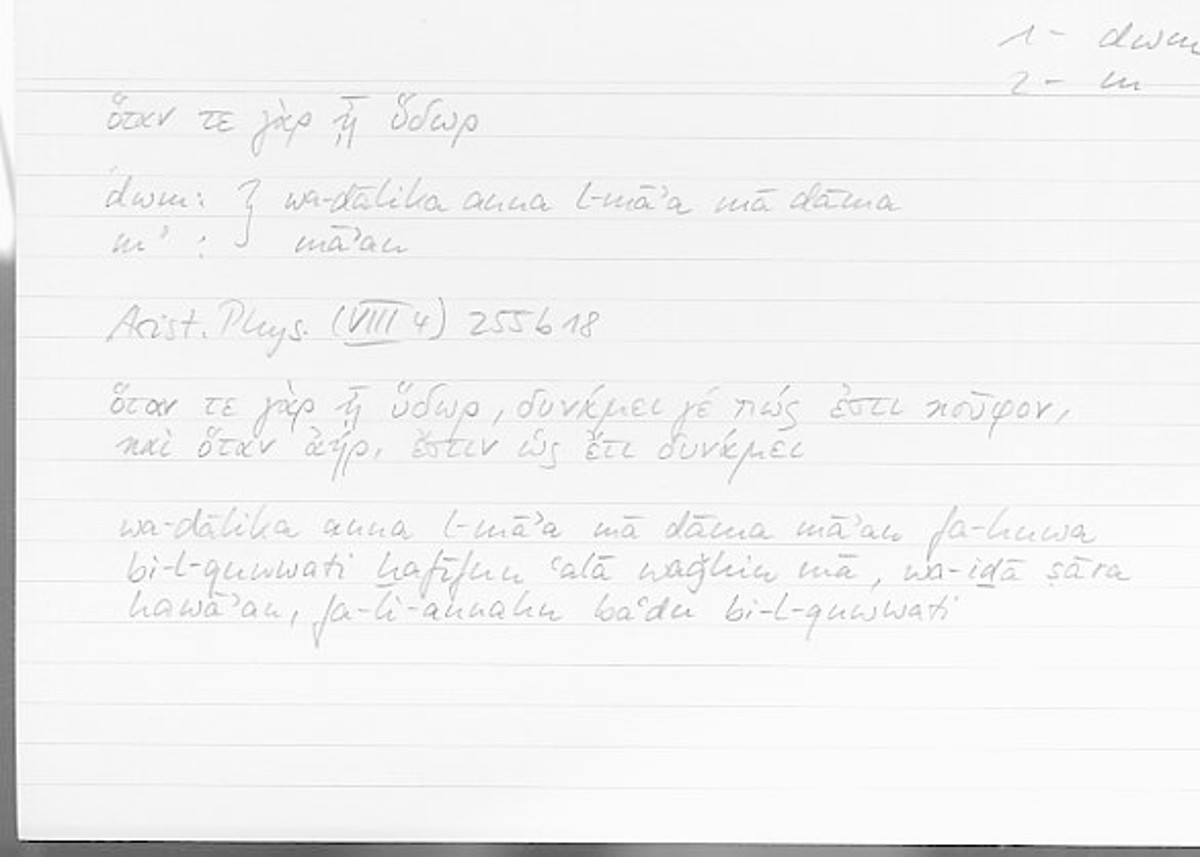 1 - dwm
2 - m
ὅταν τε γὰρ ᾖ ὕδωρ
dwm: } wa-ḏālika anna l-māʾa mā dāma
mʾ : māʾan
Arist. Phys. (VIII 4) 255 b 18
ὅταν τε γὰρ ᾖ ὕδωρ, δυνάμει γέ πώς ἐστι κοῦφον,
καὶ ὅταν ἀήρ, ἔστιν ὡς ἔτι δυνάμει
wa-dālika anna l-māʾa mā dāma māʾan fa-huwa
bi-l-quwwati ḫafīfun ʿalā waǧhin mā, wa-iḏā ṣāra
hawāʾan, fa-li-annahu baʿdu bi-l-quwwati